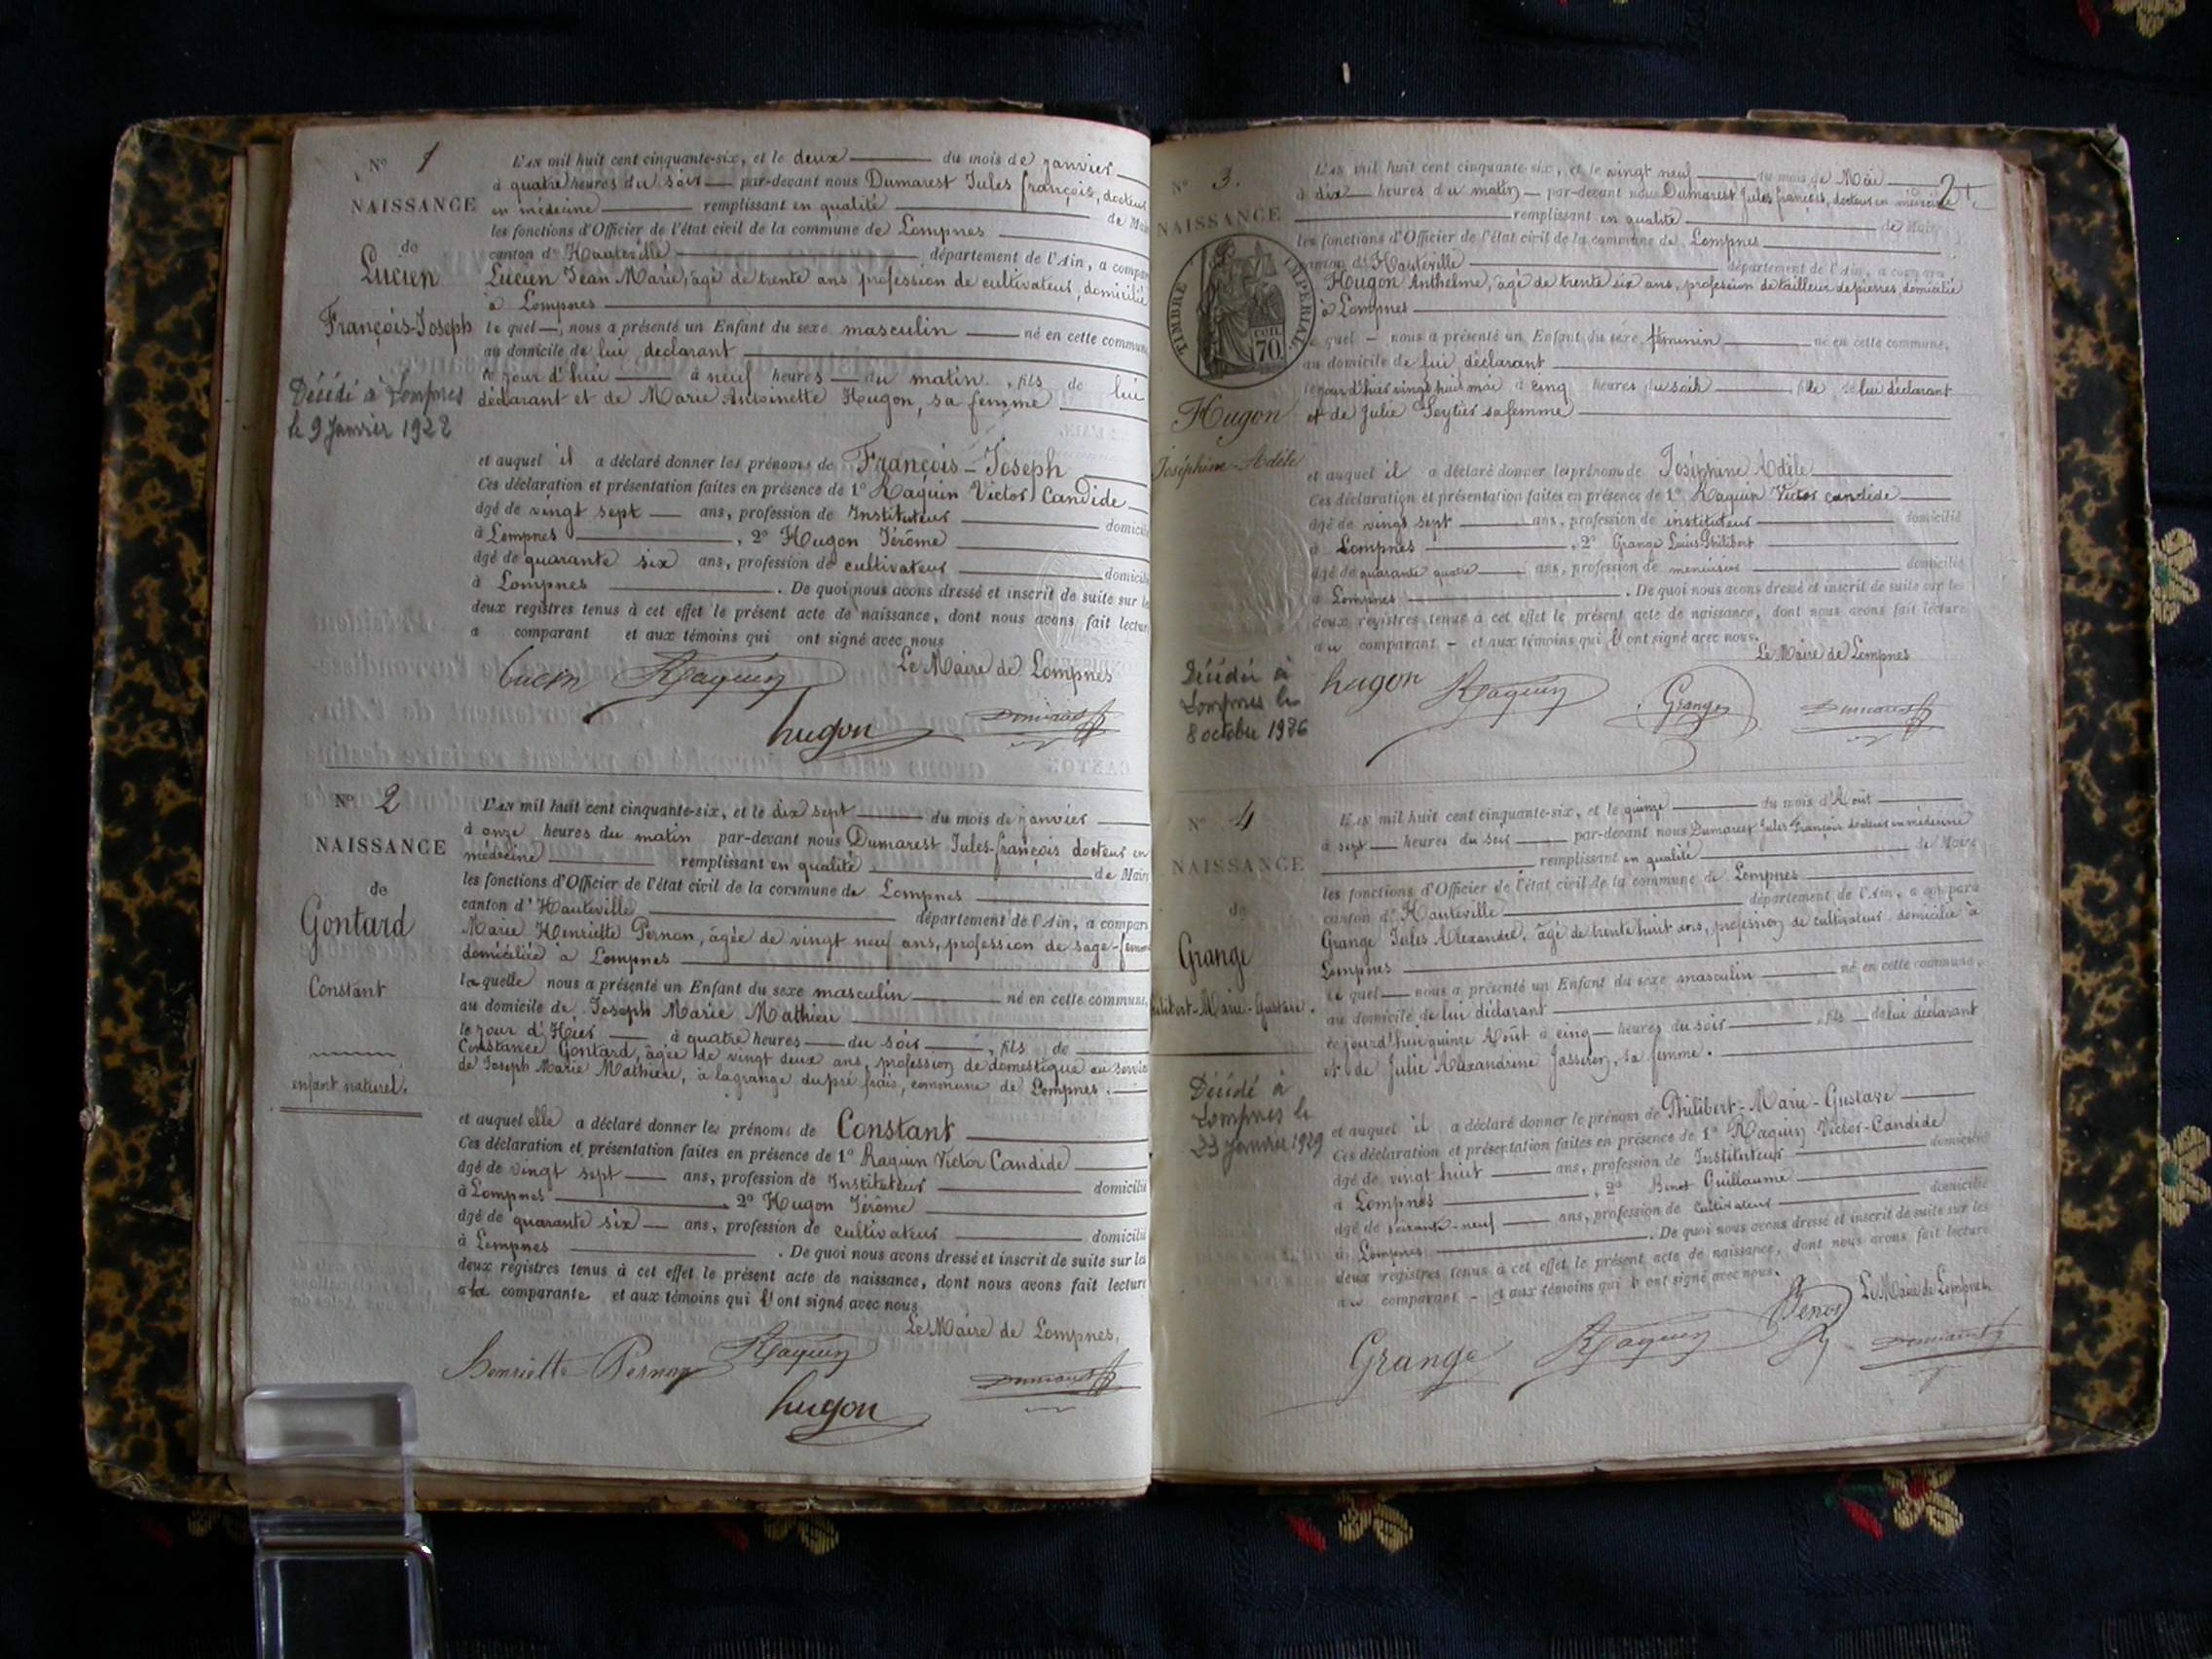 N° 1
NAISSANCE
de
Lucien
François-Joseph
Décédé à Lompnes
le 9 Janvier 1922
L'AN mil huit cent cinquante-six, et le deux du mois de janvier
à quatre heures du soir par-devant nous Dumarest Jules françois, docteur
en médecine remplissant en qualité de Maire
les fonctions d'Officier de l'état civil de la commune de Lompnes
canton d'Hauteville département de l'Ain, a compar
Lucien Jean Marie, âgé de trente ans profession de cultivateur, domicilié
à Lompnes
le quel, nous a présenté un Enfant du sexe masculin né en cette commune
au domicile de lui déclarant
le jour d'hui à neuf heures du matin, fils de lui
déclarant et de Marie Antoinette Hugon, sa femme
et auquel il a déclaré donner les prénoms de François-Joseph
Ces déclaration et présentation faites en présence de 1° Raquin Victor Candide
âgé de vingt sept ans, profession de Instituteur domicilié
à Lompnes, 2° Hugon Jérôme
âgé de quarante six ans, profession de cultivateur domicilié
à Lompnes. De quoi nous avons dressé et inscrit de suite sur les
deux registres tenus à cet effet le présent acte de naissance, dont nous avons fait lecture
a comparant et aux témoins qui ont signé avec nous
Le Maire de Lompnes
Lucien Raquin
hugon Dumarest
N° 2
NAISSANCE
de
Gontard
Constant
enfant naturel.
L'AN mil huit cent cinquante-six, et le dix sept du mois de janvier
à onze heures du matin par-devant nous Dumarest Jules-françois docteur en
médecine remplissant en qualité de Maire
les fonctions d'Officier de l'état civil de la commune de Lompnes
canton d'Hauteville département de l'Ain, a compar
Marie Henriette Pernon, âgée de vingt neuf ans, profession de sage-femme
domiciliée à Lompnes
laquelle nous a présenté un Enfant du sexe masculin né en cette commune,
au domicile de Joseph Marie Mathieu
le jour d'Hier à quatre heures du soir, fils de
Constance Gontard, âgée de vingt deux ans, profession de domestique au service
de Joseph Marie Mathieu, à lagrange dupré frais, commune de Lompnes.
et auquel elle a déclaré donner les prénoms de Constant
Ces déclaration et présentation faites en présence de 1° Raquin Victor Candide
âgé de vingt sept ans, profession de Instituteur domicilié
à Lompnes 2° Hugon Jérôme
âgé de quarante six ans, profession de cultivateur domicilié
à Lompnes. De quoi nous avons dressé et inscrit de suite sur les
deux registres tenus à cet effet le présent acte de naissance, dont nous avons fait lecture
a la comparante et aux témoins qui ont signé avec nous
Le Maire de Lompnes,
henriette Pernon Raquin
hugon Dumarest
N° 3.
NAISSANCE
TIMBRE IMPERIAL
70
Hugon
Joséphine-Adèle
Décédée à
Lompnes le
8 octobre 1926
L'AN mil huit cent cinquante-six, et le vingt neuf du mois de Mai
à dix heures du matin par-devant nous Dumarest Jules françois, docteur en médecine
remplissant en qualité de Maire
les fonctions d'Officier de l'état civil de la commune de Lompnes
canton d'Hauteville département de l'Ain, a comparu
Hugon Anthelme, âgé de trente six ans, profession de tailleur de pierres, domicilié
à Lompnes
le quel nous a présenté un Enfant du sexe féminin né en cette commune,
au domicile de lui déclarant
le jour d'hier vingt huit mai à cinq heures du soir fille de lui déclarant
et de Julie Seytier sa femme
et auquel il a déclaré donner les prénoms de Joséphine Adèle
Ces déclaration et présentation faites en présence de 1° Raquin Victor Candide
âgé de vingt sept ans, profession de instituteur domicilié
à Lompnes, 2° Grange Louis Philibert
âgé de quarante quatre ans, profession de menuisier domicilié
à Lompnes. De quoi nous avons dressé et inscrit de suite sur les
deux registres tenus à cet effet le présent acte de naissance, dont nous avons fait lecture
au comparant et aux témoins qui ont signé avec nous.
Le Maire de Lompnes
hugon Raquin Grange Dumarest
N° 4
NAISSANCE
de
Grange
Philibert-Marie-Gustave.
Décédé à
Lompnes le
23 janvier 1929
L'AN mil huit cent cinquante-six, et le quinze du mois d'Août
à sept heures du soir par-devant nous Dumarest Jules François docteur en médecine
remplissant en qualité de Maire
les fonctions d'Officier de l'état civil de la commune de Lompnes
canton d'Hauteville département de l'Ain, a comparu
Grange Jules Alexandre, âgé de trente huit ans, profession de cultivateur, domicilié à
Lompnes
le quel nous a présenté un Enfant du sexe masculin né en cette commune,
au domicile de lui déclarant
ce jourd'hui quinze Août à cinq heures du soir, fils de lui déclarant
et de Julie Alexandrine Jasseron, sa femme.
et auquel il a déclaré donner le prénom de Philibert-Marie-Gustave
Ces déclaration et présentation faites en présence de 1° Raquin Victor-Candide
âgé de vingt huit ans, profession de Instituteur domicilié
à Lompnes, 2° Benot Guillaume
âgé de soixante-neuf ans, profession de Cultivateur domicilié
à Lompnes. De quoi nous avons dressé et inscrit de suite sur les
deux registres tenus à cet effet le présent acte de naissance, dont nous avons fait lecture
au comparant et aux témoins qui ont signé avec nous.
Le Maire de Lompnes
Grange Raquin Benot Dumarest